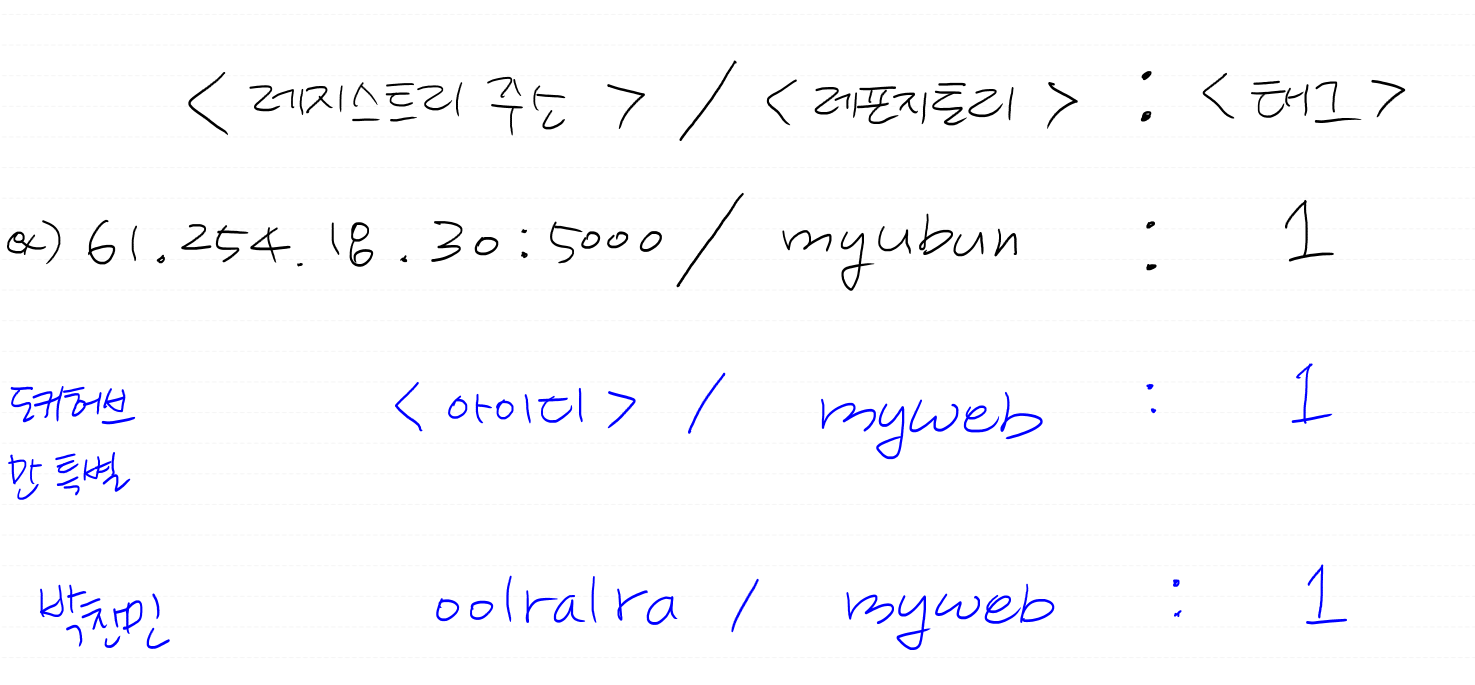 < 레지스트리 주소 > / < 레포지토리 > : < 태그 >
ex) 61.254.18.30:5000 / myubun : 1
도커허브 < 아이디 > / myweb : 1
만 특별
박찬민 oolralra / myweb : 1